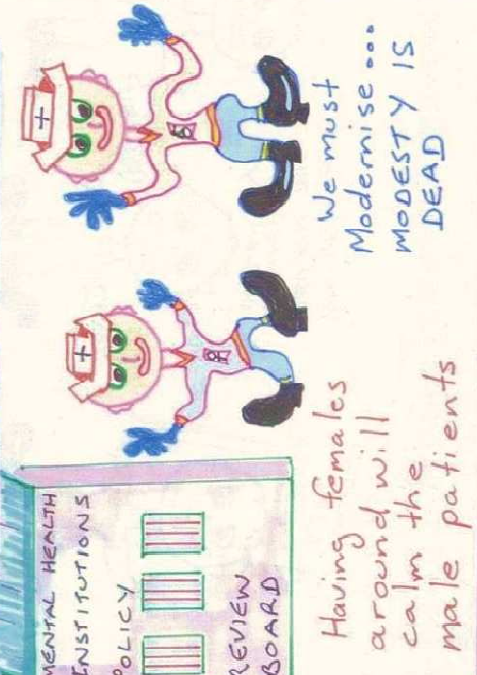 MENTAL HEALTH
INSTITUTIONS
POLICY
REVIEW
BOARD
Having females
around will
calm the
male patients
We must
Modernise...
MODESTY IS
DEAD